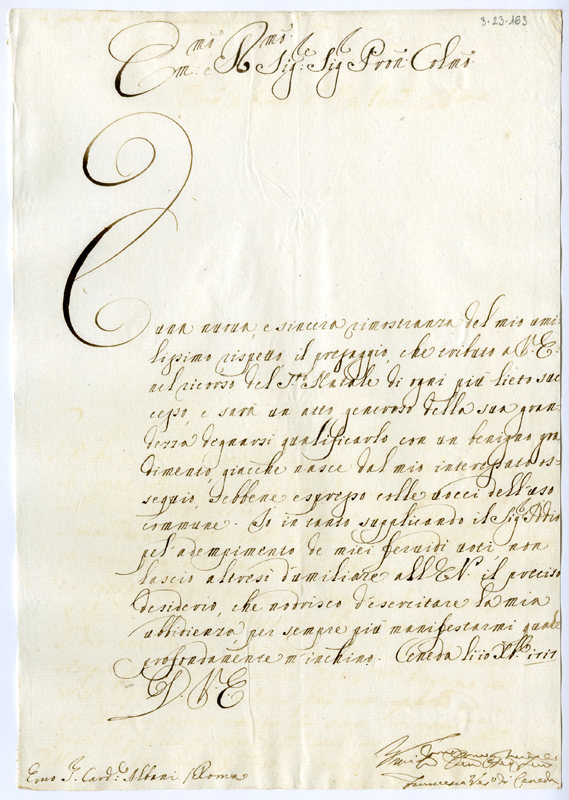 3-23-163
Em.mo e R.mo Sig.re Sig.r Pron Colmo
È una nuova, e sincera rimostranza del mio umi-
lissimo rispetto il presaggio, che tributo a V.E.
nel ricorso del S.to Natale di ogni più lieto suc-
cesso, e sarà un atto generoso della sua gran-
dezza degnarsi qualificarlo con un benigno gra-
dimento, giacche nasce dal mio os-
sequio, sebbene espresso colle voci dell'uso
commune. Io in tanto supplicando il Sig.r Iddio
pel adempimento de miei fervidi voti non
lascio altresi d'umiliare all'E.V. il preciso
desiderio, che nodrisco d'esercitare la mia
ubbidienza per sempre più manifestarmi quale
profondamente m'inchino. Ceneda li X.bre 1717
D V.E.
Emo S.r Card.e Albani Roma
Francesco Ves.o di Ceneda